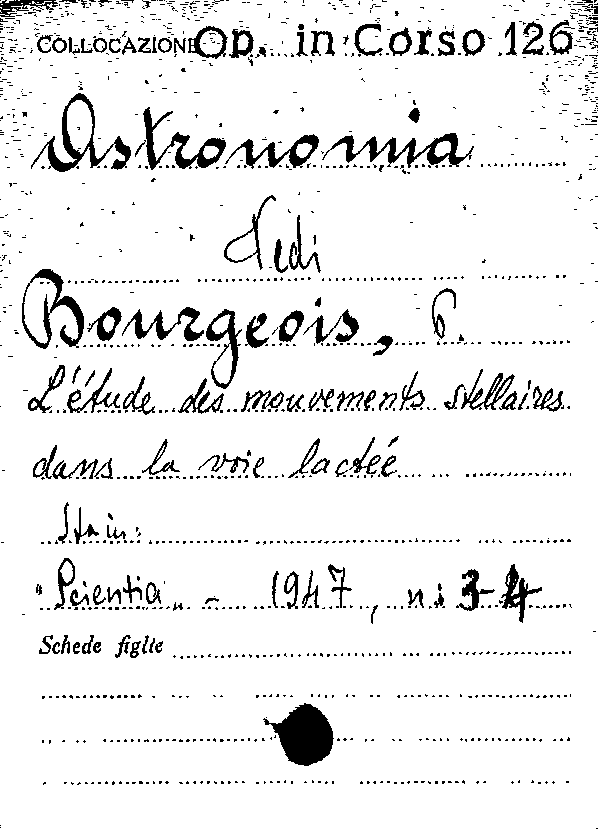 COLLOCAZIONE Op. in Corso 126
Astronomia
Vedi
Bourgeois, P.
L'étude des mouvements stellaires
dans la voie lactéé
Sta in:
"Scientia" - 1947, n: 3-4
Schede figlie